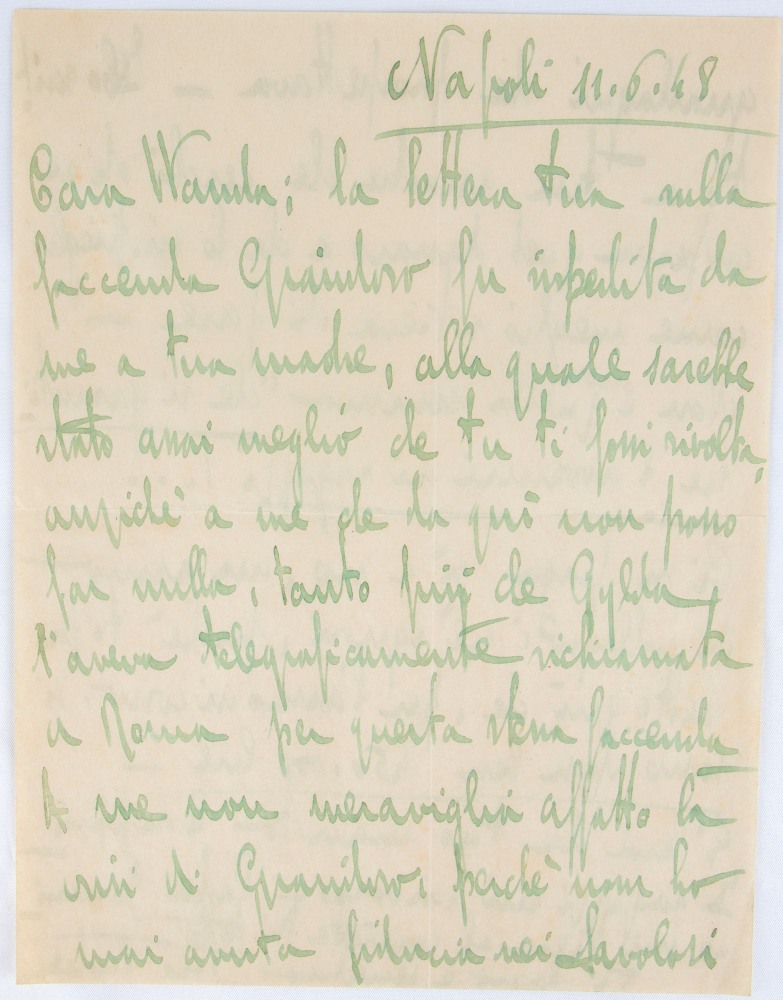 Napoli 11.6.48
Cara Wanda; la lettera tua sulla
faccenda fu spedita da
me a tua madre, alla quale sarebbe
stato assai meglio che tu ti fossi rivolta,
anzichè a me che da quì non posso
far nulla, tanto più che Gylda
t'aveva telegraficamente richiamata
a Roma per questa stessa faccenda
A me non meraviglia affatto la
crisi di perchè non ho
mai avuta fiducia nei